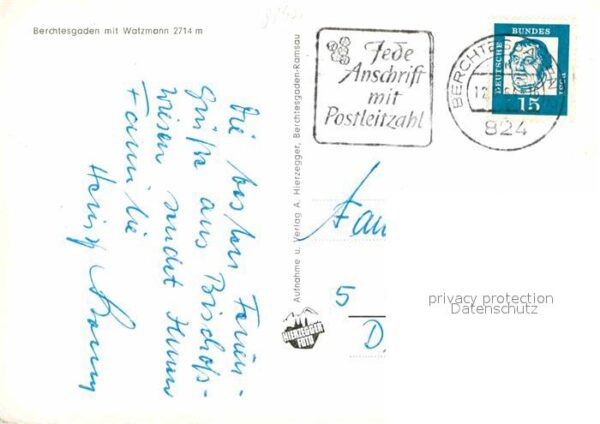 Berchtesgaden mit Watzmann 2714 m
Die besten Ferien-
grüße aus Bischofs-
wiesen sendet Ihnen
Familie
Aufnahme u. Verlag A. Hierzegger, Berchtesgaden-Ramsau
HIERZEGGER
FOTO
Jede
Anschrift
mit
Postleitzahl
BERCHTESGADEN
12
824
DEUTSCHE BUNDES
15
Fam
5
D
privacy protection
Datenschutz